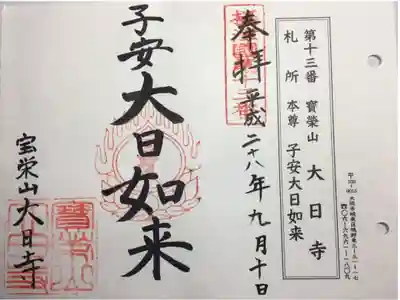 第十三番 寶榮山 大日寺
札所 本尊 子安大日如来
奉拝 平成二十八年九月十日
子安大日如来
宝栄山大日寺